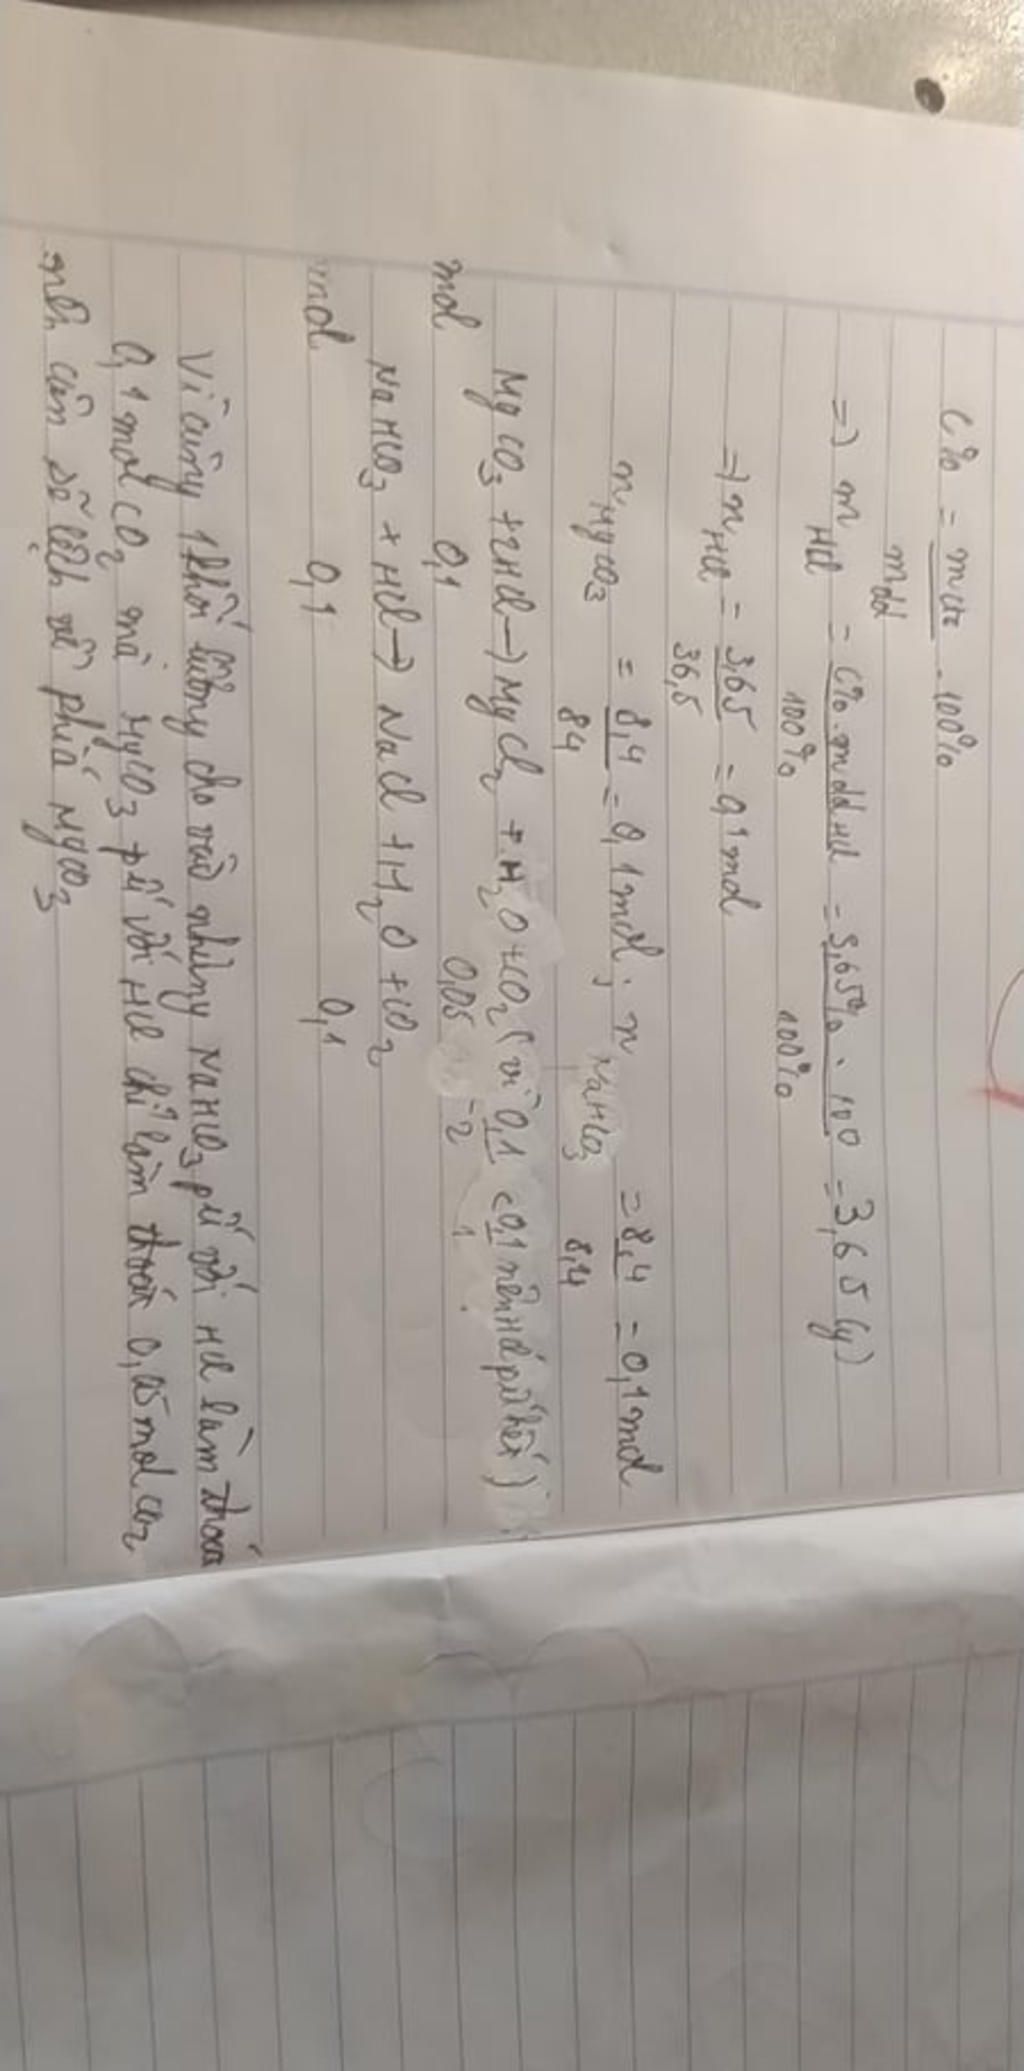 C% = mct/mdd . 100%
=) mHCl = C%.mddHCl/100% = 3,65%.100/100% = 3,65 (g)
=) nHCl = 3,65/36,5 = 0,1 mol
nMgCO3 = 8,4/84 = 0,1 mol ; nNaHCO3 = 8,4/8,4 = 0,1 mol
MgCO3 + 2HCl → MgCl2 + H2O + CO2 (vì 0,1/2 < 0,1/1 nên HCl pứ hết)
mol 0,1 0,05
NaHCO3 + HCl → NaCl + H2O + CO2
mol 0,1 0,1
Vì cùng 1 khối lượng cho vào nhưng NaHCO3 pứ với HCl làm thoát
0,1 mol CO2 mà MgCO3 pứ với HCl chỉ làm thoát 0,05 mol CO2
nên cân sẽ lệch về phía MgCO3